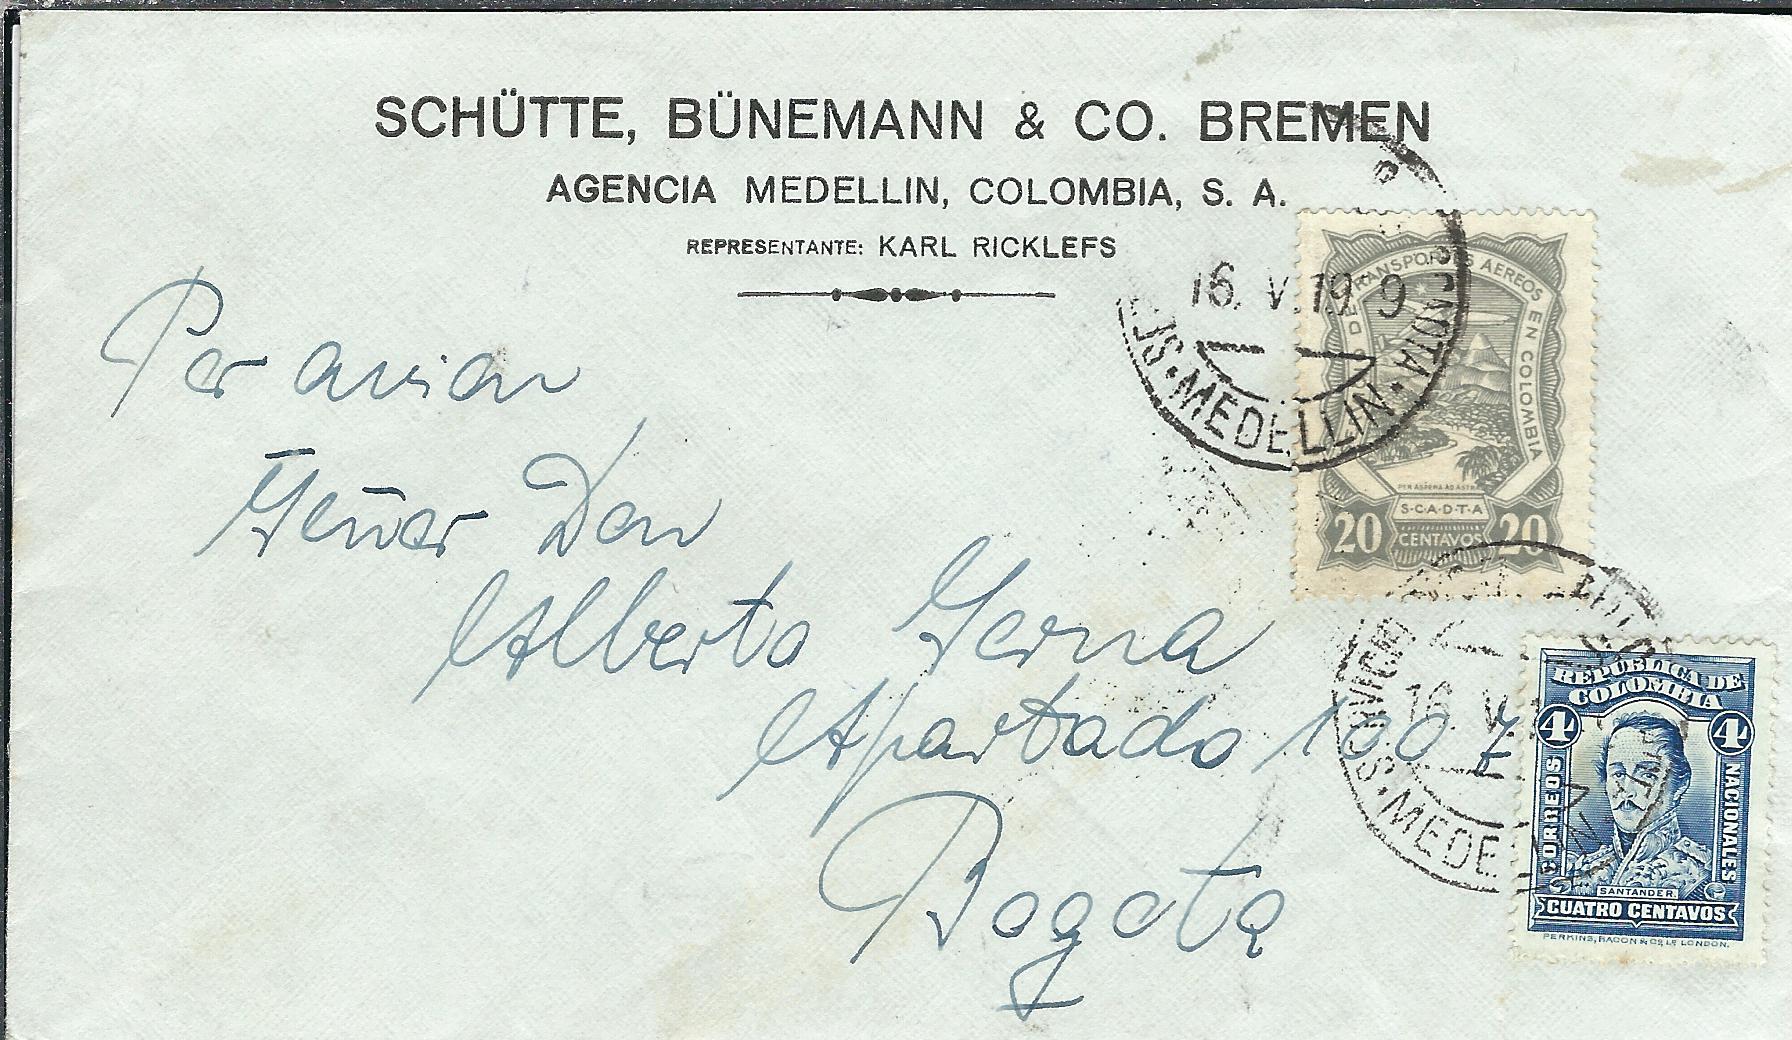 SCHÜTTE, BÜNEMANN & CO. BREMEN
AGENCIA MEDELLIN, COLOMBIA, S. A.
REPRESENTANTE: KARL RICKLEFS
Per avion
Señor Don
Alberto Serna
Apartado 1007
Bogota
16. V. 19 9
MEDELLIN
DE TRANSPORTES AEREOS EN COLOMBIA
PER ASPERA AD ASTRA
S·C·A·D·T·A
20 CENTAVOS 20
16 V
REPUBLICA DE
COLOMBIA
4 4
CORREOS NACIONALES
SANTANDER.
CUATRO CENTAVOS
PERKINS, BACON & CO. LD. LONDON.